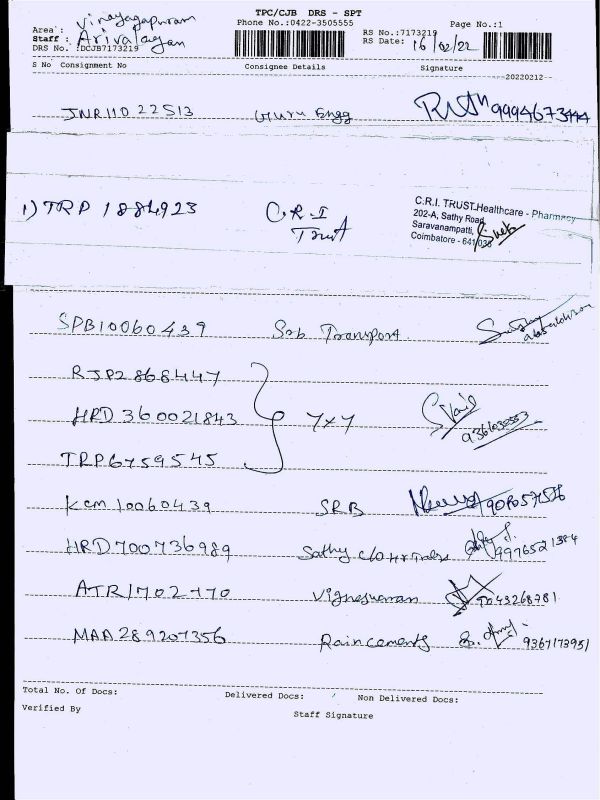 TPC/CJB DRS - SPT
Area : Vinayagapuram Phone No.:0422-3505555 Page No.:1
Staff : Arivalagan RS No.:7173219
DRS No. :DCJB7173219 RS Date: 16/02/22
S No Consignment No Consignee Details Signature
20220212
JNR110 22513 Guru Engg 9994673444
1) TRP 1884923 C.R.I Trust
C.R.I. TRUST-Healthcare - Pharmacy
202-A, Sathy Road,
Saravanampatti,
Coimbatore - 641 035
SPB10060439 Srb Transport
RJP2868447
HRD 360021843 7x7
TRP6759545
kcm 10060439 SRB
HRD700736989 Sathy c/o 9976521384
ATR1702770 Vigneswaran 9043268781
MAA 289207356 Raincements 9367173951
Total No. Of Docs: Delivered Docs: Non Delivered Docs:
Verified By Staff Signature